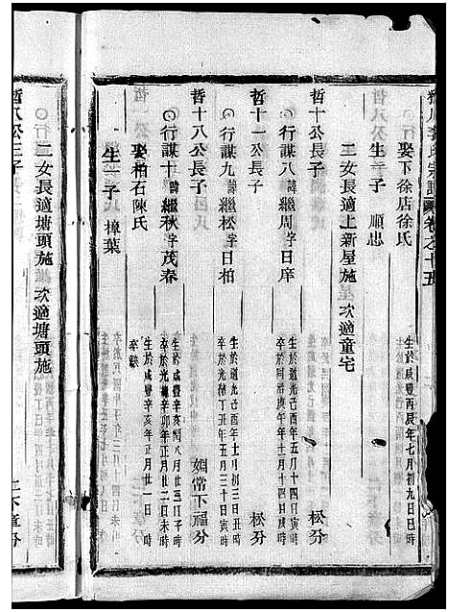 氏宗譜 卷之十五
娶下徐店徐氏 生於咸豐丙辰年七月初九日巳時
生一子 順忠
二女長適上新屋施 次適童宅
哲十公長子 松分
行謀八 諱繼周 字日庠 生於道光己酉年五月十四日寅時 卒於同治庚午年十一月十四日時
哲十一公長子 松分
行謀九 諱繼松 字日柏 生於道光己酉年十月初三日丑時 卒於光緒丁丑年五月三十日寅時
哲十八公長子 嫺常下福分
行謀十 諱繼秋 字茂春 生於咸豐辛亥閏八月廿三日子時 卒於光緒辛卯年正月廿二日時
娶柏石陳氏 生於咸豐辛亥年正月廿一日時
生一子 樟葉
二女長適塘頭施 次適塘頭施
哲八公三子 下章分